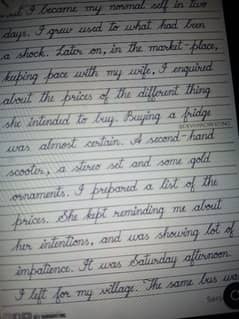 but I became my normal self in two
days. I grew used to what had been
a shock. Later on, in the market-place,
keeping pace with my wife, I enquired
about the prices of the different thing
she intended to buy. Buying a fridge
was almost certain. A second-hand
scooter, a stereo set and some gold
ornaments. I prepared a list of the
prices. She kept reminding me about
her intentions, and was showing lot of
impatience. It was Saturday afternoon.
I left for my village. The same bus was